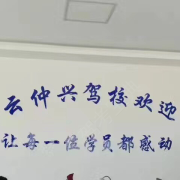 云仲兴驾校欢迎
让每一位学员都感动